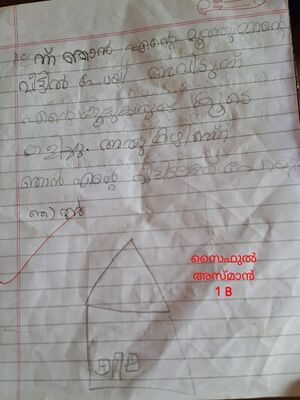 ഇന്ന് ഞാൻ എന്റെ മുത്തുമ്മാന്റെ
വീട്ടിൽ പോയി അവിടുന്ന്
എന്റെ കൂട്ടുകാരുടെ കൂടെ
കളിച്ചു. അതു കഴിഞ്ഞ്
ഞാൻ എന്റെ വീട്ടിലേക്ക് പോയി
ഞാൻ
സൈഹുൽ
അസ്മാൻ
1 B